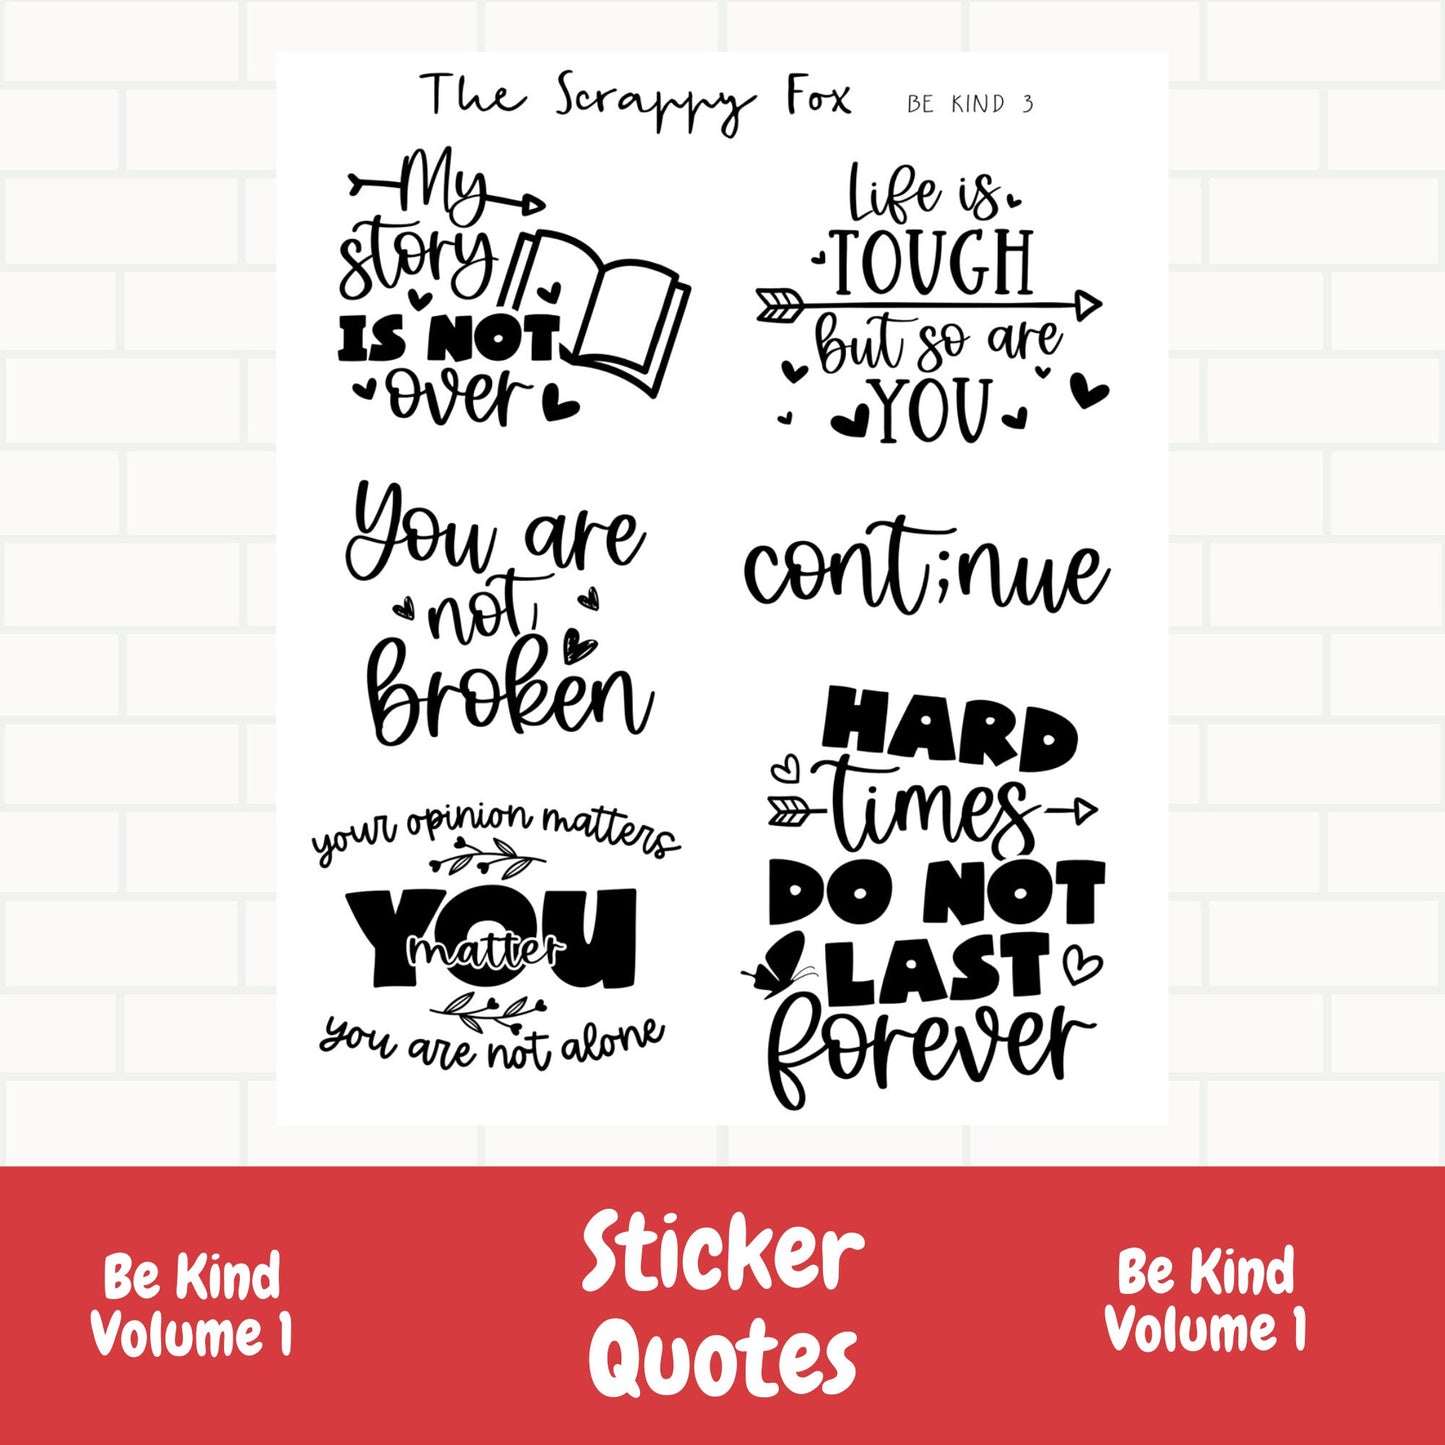 The Scrappy Fox BE KIND 3
My
story
IS NOT
over
Life is
TOUGH
but so are
YOU
You are
not
broken
cont;nue
your opinion matters
YOU
matter
you are not alone
HARD
times
DO NOT
LAST
forever
Be Kind
Volume 1
Sticker
Quotes
Be Kind
Volume 1